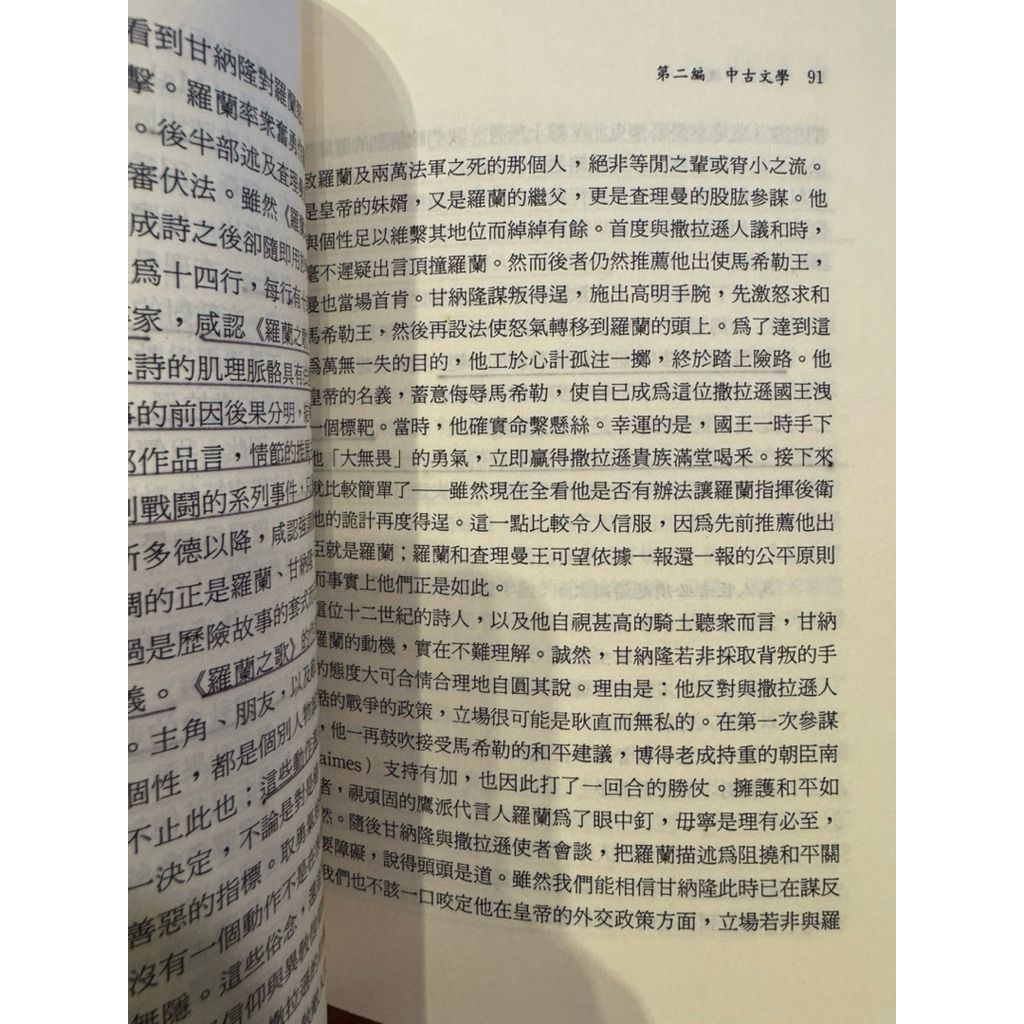 看到甘納隆對羅蘭
擊。羅蘭率衆奮勇
。後半部述及查理
審伏法。雖然《羅蘭
成詩之後卻隨即用
爲十四行，每行有十
家，咸認《羅蘭之歌
詩的肌理脈骼具有
的前因後果分明，
作品言，情節的推
戰鬪的系列事件，
斯多德以降，咸認強調
調的正是羅蘭、甘納隆
過是歷險故事的套式
義。《羅蘭之歌》的
。主角、朋友，以及
個性，都是個別人物
不止此也；這些動作
一決定，不論是對是
善惡的指標。取勇氣
沒有一個動作不是在
無隱。這些俗念，
信仰與異敎
撒拉遜的
第二編 中古文學 91
致羅蘭及兩萬法軍之死的那個人，絕非等閒之輩或宵小之流。
是皇帝的妹婿，又是羅蘭的繼父，更是查理曼的股肱參謀。他
與個性足以維繫其地位而綽綽有餘。首度與撒拉遜人議和時，
毫不遲疑出言頂撞羅蘭。然而後者仍然推薦他出使馬希勒王，
曼也當場首肯。甘納隆謀叛得逞，施出高明手腕，先激怒求和
馬希勒王，然後再設法使怒氣轉移到羅蘭的頭上。爲了達到這
爲萬無一失的目的，他工於心計孤注一擲，終於踏上險路。他
皇帝的名義，蓄意侮辱馬希勒，使自己成爲這位撒拉遜國王洩
一個標靶。當時，他確實命繫懸絲。幸運的是，國王一時手下
他「大無畏」的勇氣，立即贏得撒拉遜貴族滿堂喝釆。接下來
就比較簡單了——雖然現在全看他是否有辦法讓羅蘭指揮後衛
他的詭計再度得逞。這一點比較令人信服，因爲先前推薦他出
臣就是羅蘭；羅蘭和查理曼王可望依據一報還一報的公平原則
而事實上他們正是如此。
這位十二世紀的詩人，以及他自視甚高的騎士聽衆而言，甘納
羅蘭的動機，實在不難理解。誠然，甘納隆若非採取背叛的手
的態度大可合情合理地自圓其說。理由是：他反對與撒拉遜人
的戰爭的政策，立場很可能是耿直而無私的。在第一次參謀
，他一再鼓吹接受馬希勒的和平建議，博得老成持重的朝臣南
aimes）支持有加，也因此打了一回合的勝仗。擁護和平如
者，視頑固的鷹派代言人羅蘭爲了眼中釘，毋寧是理有必至，
然。隨後甘納隆與撒拉遜使者會談，把羅蘭描述爲阻撓和平關
要障礙，說得頭頭是道。雖然我們能相信甘納隆此時已在謀反
我們也不該一口咬定他在皇帝的外交政策方面，立場若非與羅